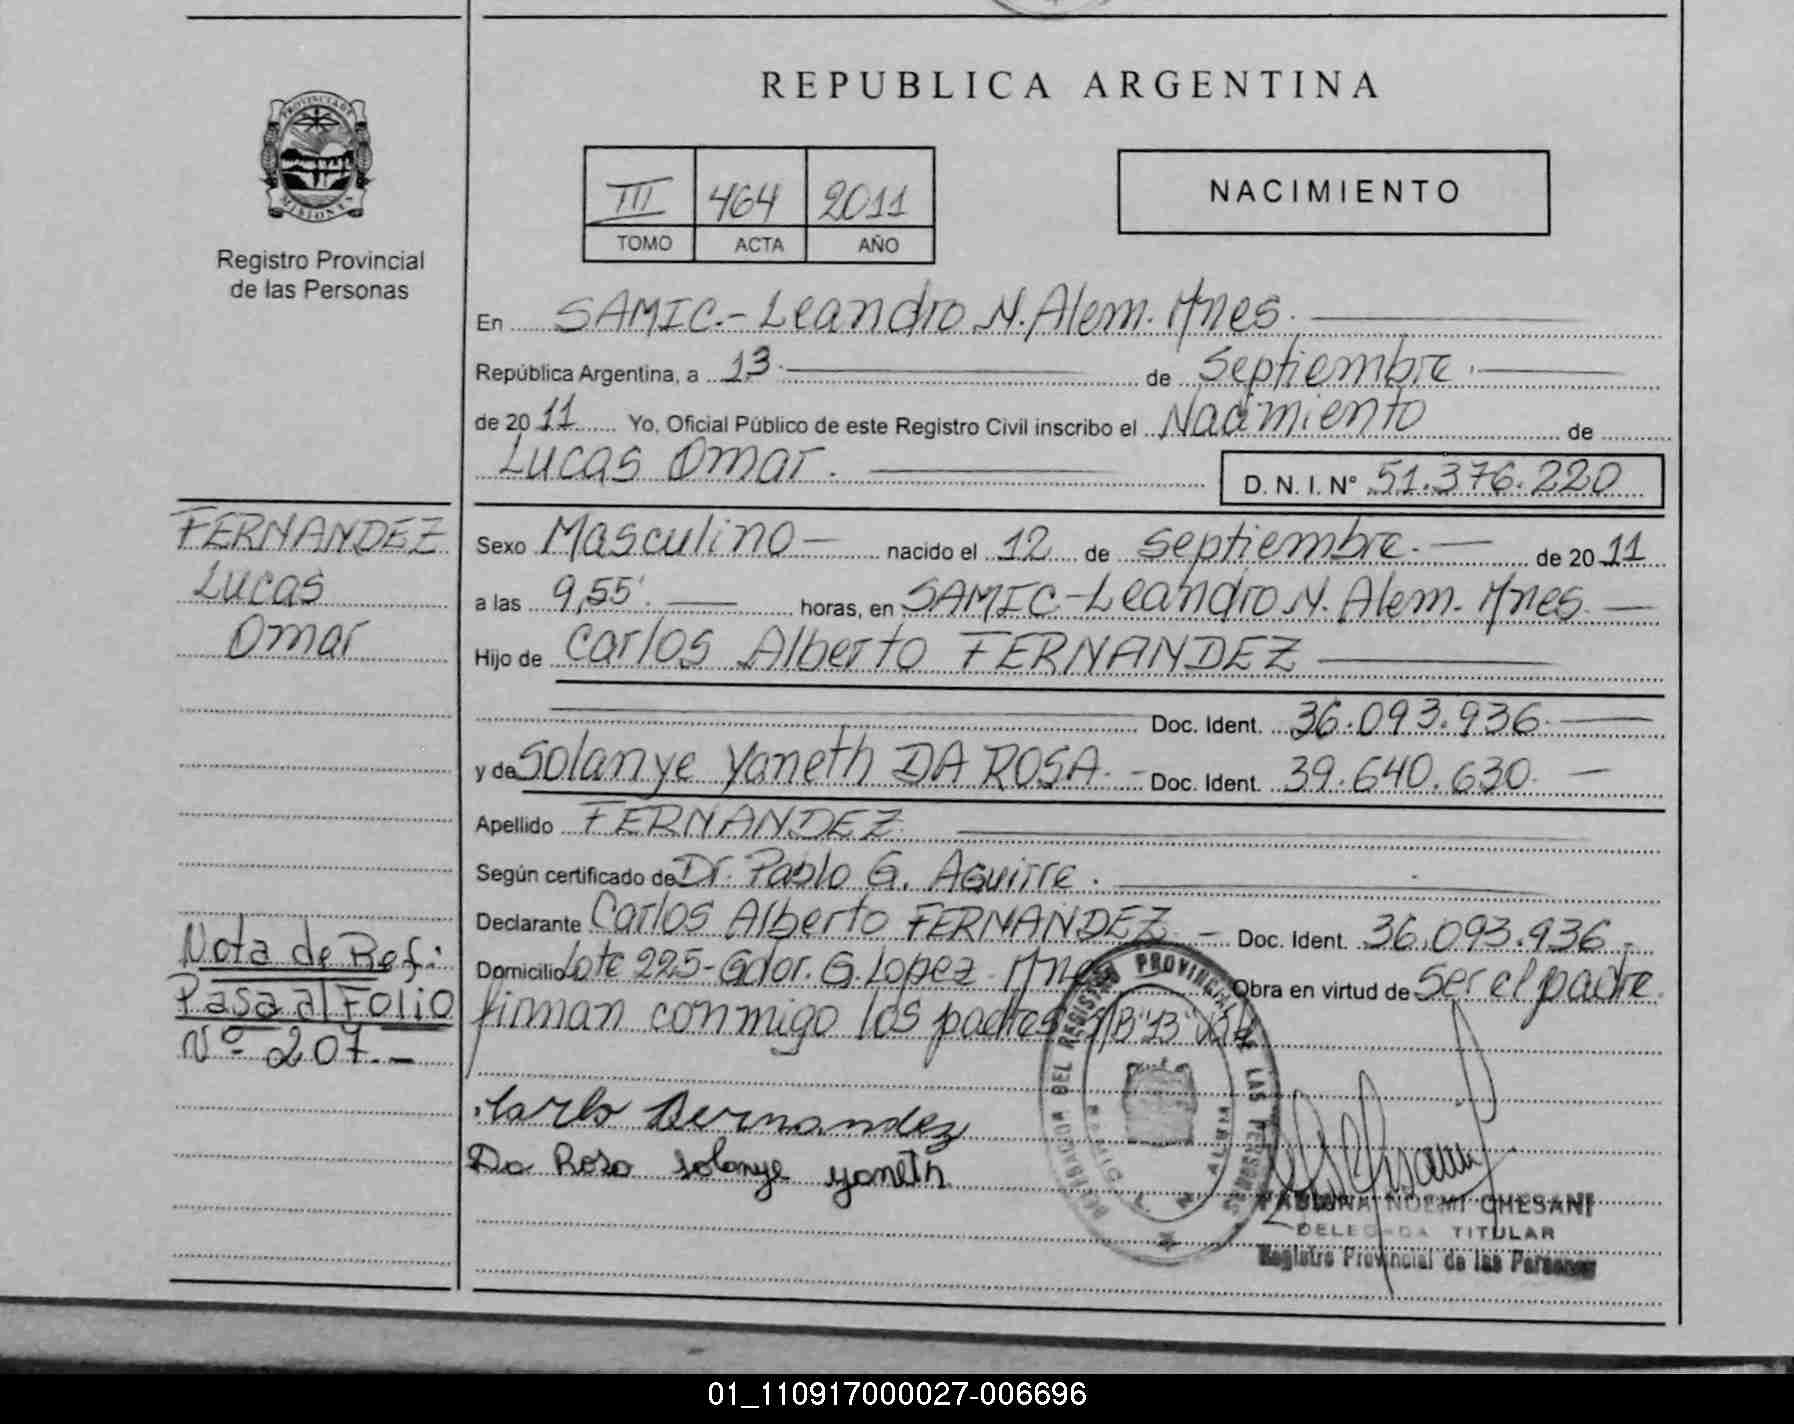 REPUBLICA ARGENTINA
PROVINCIA DE
MISIONES
Registro Provincial
de las Personas
III 464 2011
TOMO ACTA AÑO
NACIMIENTO
En SAMIC.- Leandro N. Alem. Mnes.
República Argentina, a 13. de Septiembre.
de 2011 Yo, Oficial Público de este Registro Civil inscribo el Nacimiento de
Lucas Omar.
D. N. I. N° 51.376.220
FERNANDEZ
Lucas
Omar
Sexo Masculino - nacido el 12 de septiembre. de 2011
a las 9,55'. horas, en SAMIC-Leandro N. Alem. Mnes.
Hijo de Carlos Alberto FERNANDEZ
Doc. Ident. 36.093.936.
y de Solanye Yaneth DA ROSA. - Doc. Ident. 39.640.630.
Apellido FERNANDEZ.
Según certificado de Dr. Pablo G. Aguirre.
Declarante Carlos Alberto FERNANDEZ - Doc. Ident. 36.093.936.-
Domicilio Lote 225-Gdor. G. Lopez. Mnes Obra en virtud de Ser el padre.
firman conmigo los padres
Nota de Ref:
Pasa al Folio
Nº 207.-
Carlo Fernandez
Da Rosa Solanye Yaneth
DEL REGISTRO PROVINCIAL DE LAS PERSONAS
FABIANA NOEMI CHESANI
DELEGADA TITULAR
Registro Provincial de las Personas
01_110917000027-006696